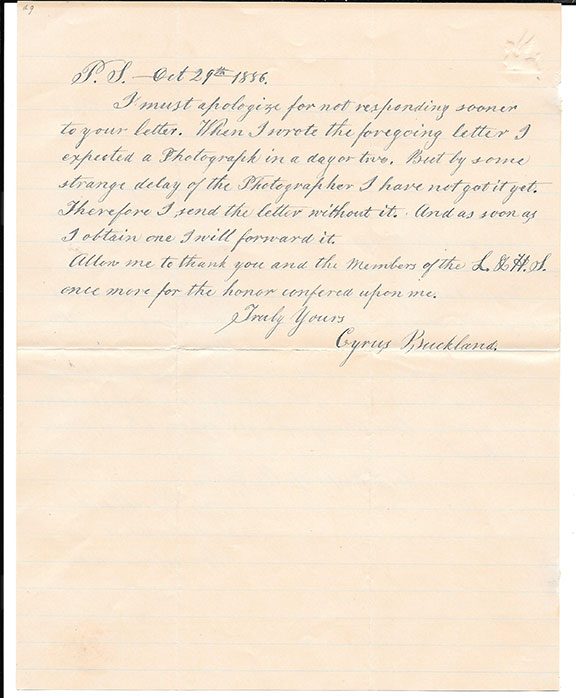 P. S. — Oct 29th 1886.
I must apologize for not responding sooner
to your letter. When I wrote the foregoing letter I
expected a Photograph in a day or two. But by some
strange delay of the Photographer I have not got it yet.
Therefore I send the letter without it. And as soon as
I obtain one I will forward it.
Allow me to thank you and the Members of the L. & H. S.
once more for the honor confered upon me.
Truly Yours
Cyrus Buckland.